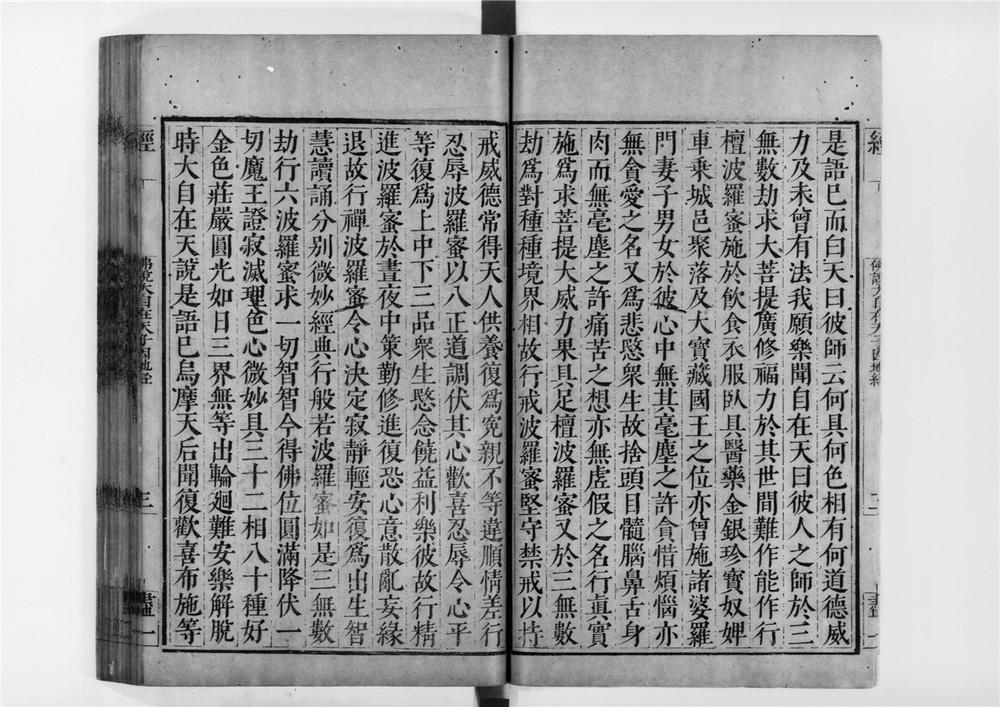 是語已而白天曰彼師云何具何色相有何道德威
力及未曾有法我願樂聞自在天曰彼人之師於三
無數劫求大菩提廣修福力於其世間難作能作行
檀波羅蜜施於飲食衣服臥具醫藥金銀珍寶奴婢
車乘城邑聚落及大寶藏國王之位亦曾施諸婆羅
門妻子男女於彼心中無其毫塵之許貪惜煩惱亦
無貪愛之名又為悲愍衆生故捨頭目髓腦鼻舌身
肉而無毫塵之許痛苦之想亦無虛假之名行眞實
施為求菩提大威力果具足檀波羅蜜又於三無數
劫為對種種境界相故行戒波羅蜜堅守禁戒以持
戒威德常得天人供養復為冤親不等違順情差行
忍辱波羅蜜以八正道調伏其心歡喜忍辱令心平
等復為上中下三品衆生愍念饒益利樂彼故行精
進波羅蜜於晝夜中策勤修進復恐心意散亂妄緣
退故行禪波羅蜜令心決定寂靜輕安復為出生智
慧讀誦分別微妙經典行般若波羅蜜如是三無數
劫行六波羅蜜求一切智智今得佛位圓滿降伏一
切魔王證寂滅理色心微妙具三十二相八十種好
金色莊嚴圓光如日三界無等出輪廻難安樂解脫
時大自在天說是語已烏摩天后聞復歡喜布施等
經
佛說大自在天子因地經
三